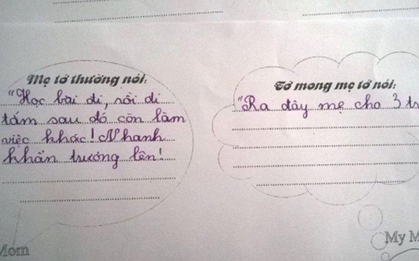 Mẹ tớ thường nói:
"Học bài đi, rồi đi
tắm sau đó còn làm
việc khác! Nhanh
khẩn trương lên!
Tớ mong mẹ tớ nói:
"Ra đây mẹ cho 3 tr
Mom
My M